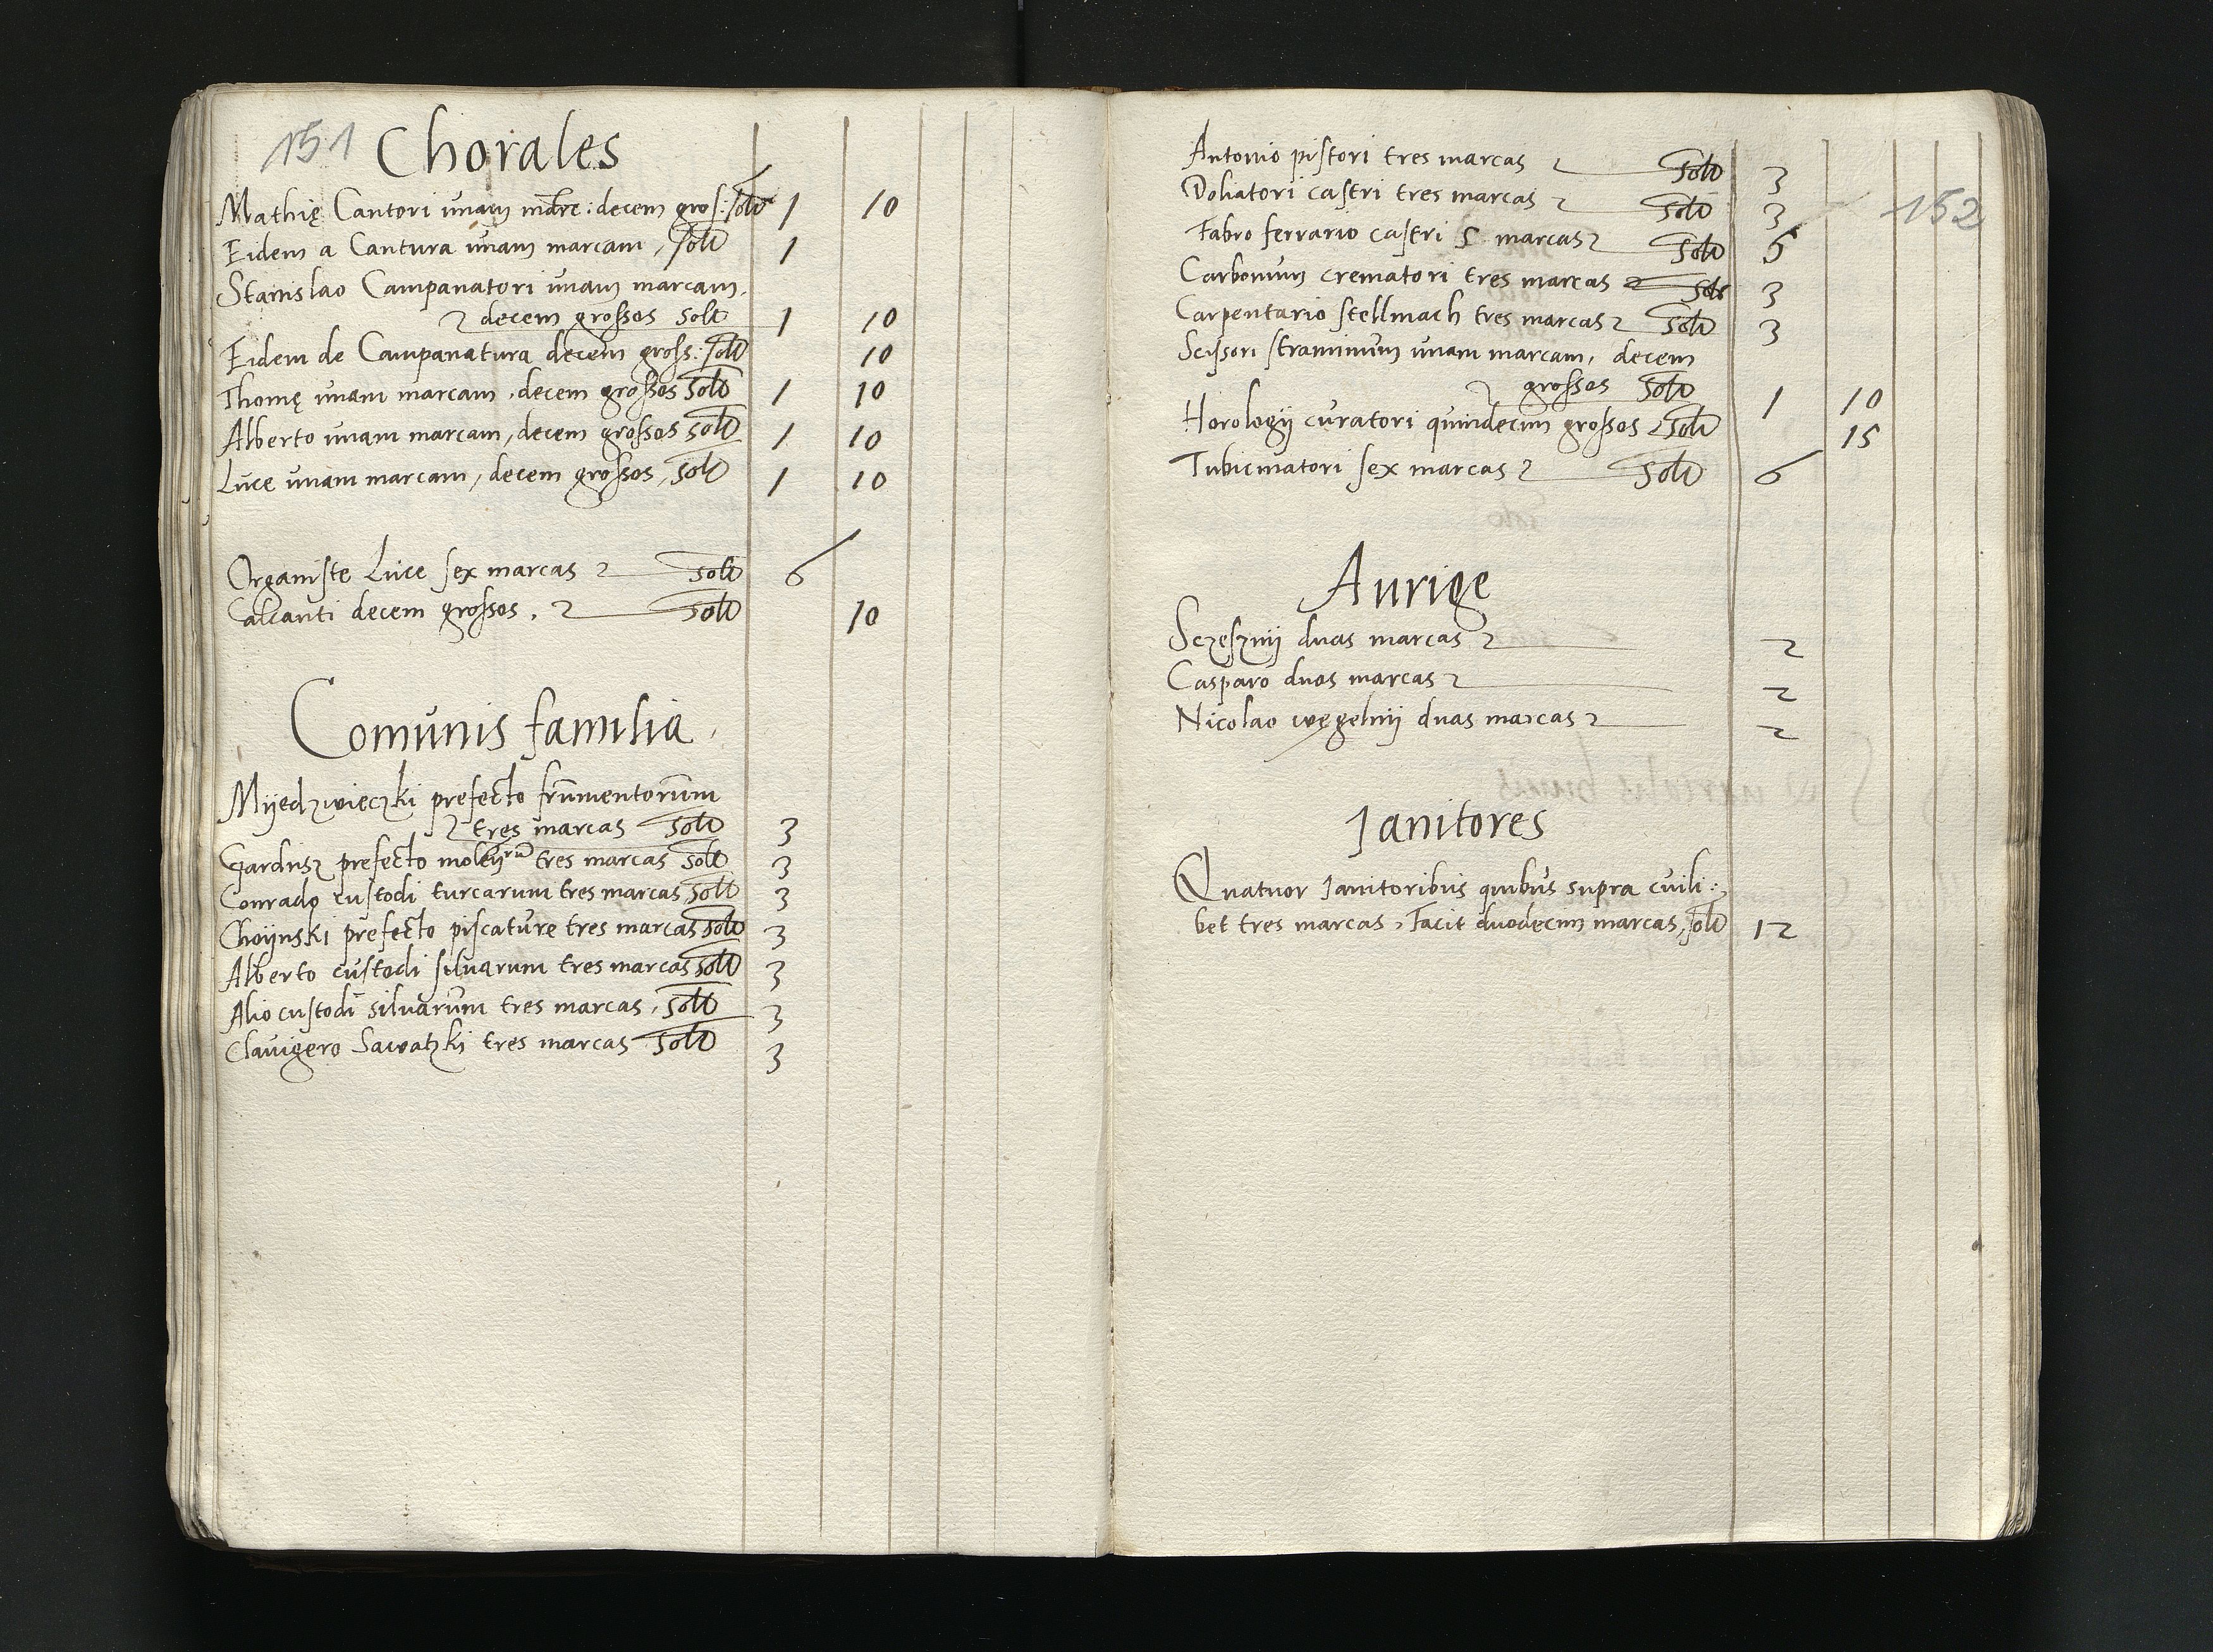 151 Chorales
Mathię Cantori unam marc: decem gros: solt 1 10
Eidem a Cantura unam marcam, solt 1
Stanislao Campanatori unam marcam,
decem grossos solt 1 10
Eidem de Campanatura decem gross: solt 10
Thomę unam marcam, decem grossos solt 1 10
Alberto unam marcam, decem grossos solt 1 10
Luce unam marcam, decem grossos, solt 1 10
Organiste Luce sex marcas solt 6
Calcanti decem grossos, solt 10
Comunis familia
Mÿedzwieczki prefecto frumentorum
tres marcas solt 3
Gardiisz prefecto tres marcas solt 3
Conrado custodi turcarum tres marcas solt 3
Choÿnski prefecto piscature tres marcas solt 3
Alberto custodi siluarum tres marcas solt 3
Alio custodi siluarum tres marcas, solt 3
Clauigero Sawatzki tres marcas solt 3
Antonio pistori tres marcas solt 3
Doliatori castri tres marcas solt 3
152
Fabro ferrario castri 5 marcas solt 5
Carbonum crematori tres marcas solt 3
Carpentario stellmach tres marcas solt 3
Scissori straminum unam marcam, decem
grossos solt 1 10
Horologÿ curatori quindecim grossos solt 15
Tubicinatori sex marcas solt 6
Aurige
Sczesznÿ duas marcas 2
Casparo duas marcas 2
Nicolao węgelnÿ duas marcas 2
Janitores
Quatuor Janitoribus quibus supra cuili:
bet tres marcas, Facit duodecim marcas, solt 12